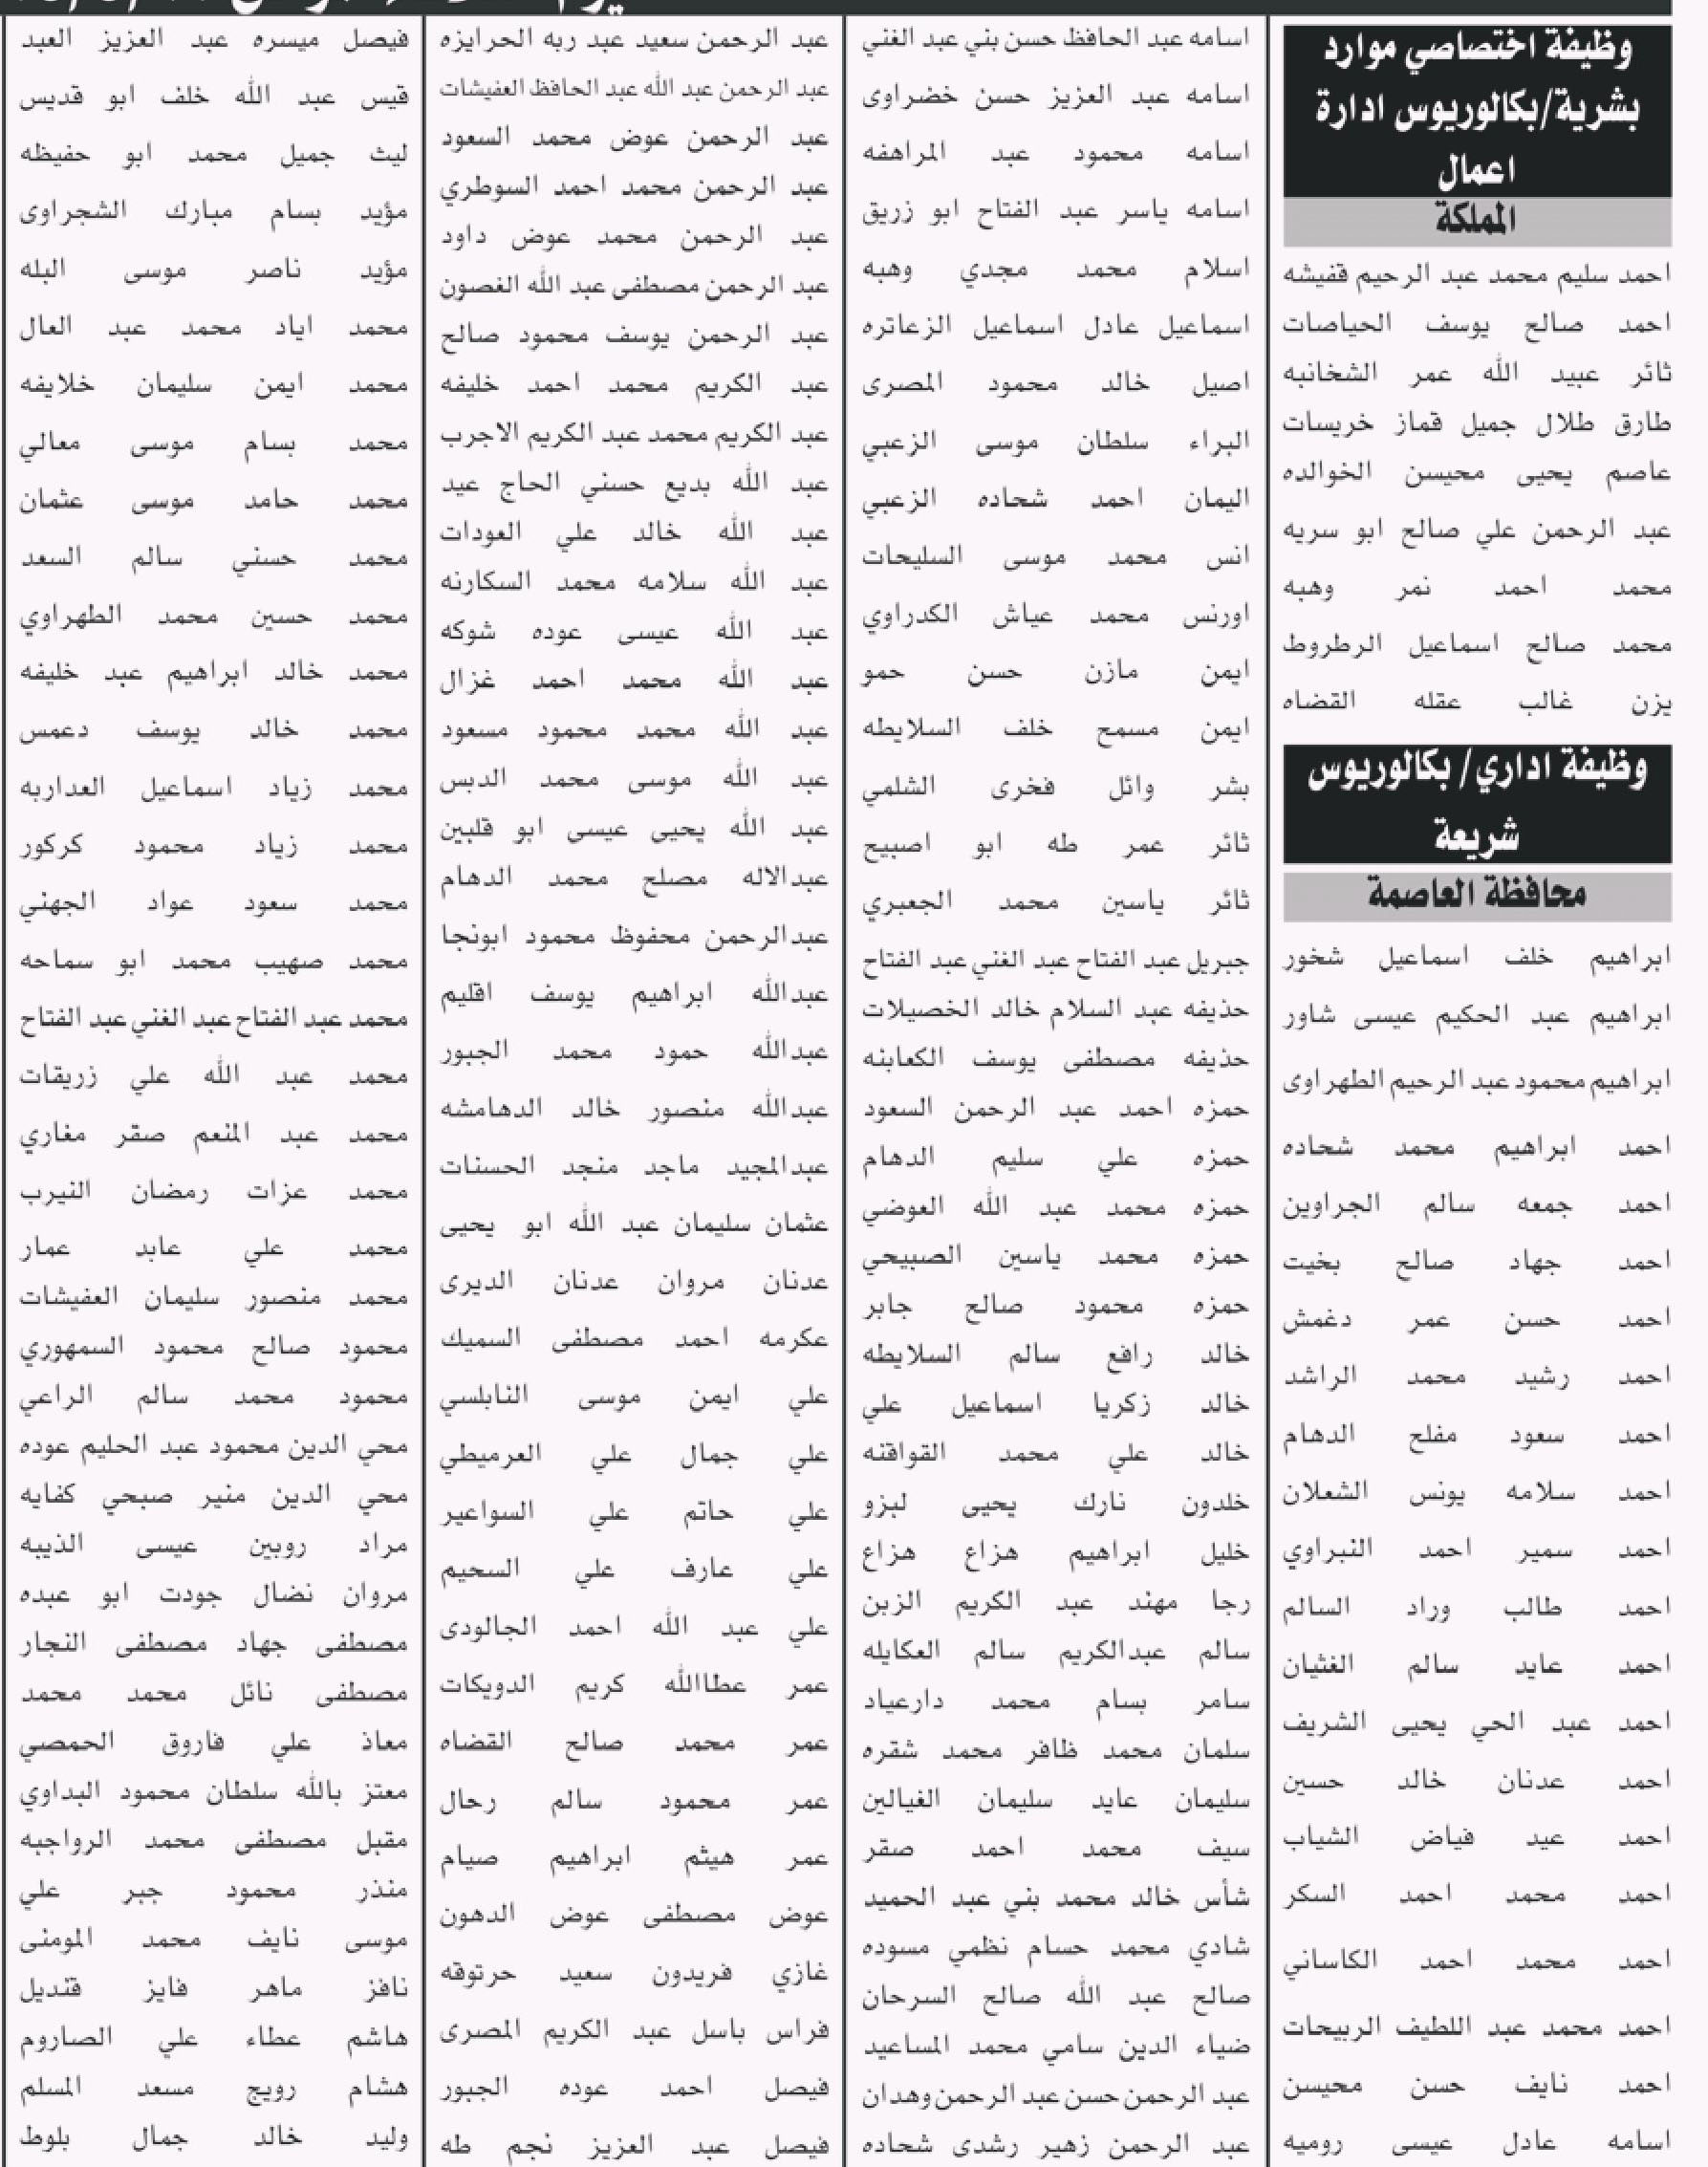 وظيفة اختصاصي موارد
بشرية/بكالوريوس ادارة
اعمال
المملكة
احمد سليم محمد عبد الرحيم قفيشه
احمد صالح يوسف الحياصات
ثائر عبيد الله عمر الشخانبه
طارق طلال جميل قماز خريسات
عاصم يحيى محيسن الخوالده
عبد الرحمن علي صالح ابو سريه
محمد احمد نمر وهبه
محمد صالح اسماعيل الرطروط
يزن غالب عقله القضاه
وظيفة اداري/ بكالوريوس
شريعة
محافظة العاصمة
ابراهيم خلف اسماعيل شخور
ابراهيم عبد الحكيم عيسى شاور
ابراهيم محمود عبد الرحيم الطهراوى
احمد ابراهيم محمد شحاده
احمد جمعه سالم الجراوين
احمد جهاد صالح بخيت
احمد حسن عمر دغمش
احمد رشيد محمد الراشد
احمد سعود مفلح الدهام
احمد سلامه يونس الشعلان
احمد سمير احمد النبراوي
احمد طالب وراد السالم
احمد عايد سالم الغثيان
احمد عبد الحي يحيى الشريف
احمد عدنان خالد حسين
احمد عيد فياض الشياب
احمد محمد احمد السكر
احمد محمد احمد الكاساني
احمد محمد عبد اللطيف الربيحات
احمد نايف حسن محيسن
اسامه عادل عيسى روميه
اسامه عبد الحافظ حسن بني عبد الغني
اسامه عبد العزيز حسن خضراوى
اسامه محمود عبد المراهفه
اسامه ياسر عبد الفتاح ابو زريق
اسلام محمد مجدي وهبه
اسماعيل عادل اسماعيل الزعاتره
اصيل خالد محمود المصرى
البراء سلطان موسى الزعبي
اليمان احمد شحاده الزعبي
انس محمد موسى السليحات
اورنس محمد عياش الكدراوي
ايمن مازن حسن حمو
ايمن مسمح خلف السلايطه
بشر وائل فخرى الشلمي
ثائر عمر طه ابو اصبيح
ثائر ياسين محمد الجعبري
جبريل عبد الفتاح عبد الغني عبد الفتاح
حذيفه عبد السلام خالد الخصيلات
حذيفه مصطفى يوسف الكعابنه
حمزه احمد عبد الرحمن السعود
حمزه علي سليم الدهام
حمزه محمد عبد الله العوضي
حمزه محمد ياسين الصبيحي
حمزه محمود صالح جابر
خالد رافع سالم السلايطه
خالد زكريا اسماعيل علي
خالد علي محمد القواقنه
خلدون نارك يحيى لبزو
خليل ابراهيم هزاع هزاع
رجا مهند عبد الكريم الزبن
سالم عبدالكريم سالم العكايله
سامر بسام محمد دارعياد
سلمان محمد ظافر محمد شقره
سليمان عايد سليمان الغيالين
سيف محمد احمد صقر
شأس خالد محمد بني عبد الحميد
شادي محمد حسام نظمي مسوده
صالح عبد الله صالح السرحان
ضياء الدين سامي محمد المساعيد
عبد الرحمن حسن عبد الرحمن وهدان
عبد الرحمن زهير رشدى شحاده
عبد الرحمن سعيد عبد ربه الحرايزه
عبد الرحمن عبد الله عبد الحافظ العفيشات
عبد الرحمن عوض محمد السعود
عبد الرحمن محمد احمد السوطري
عبد الرحمن محمد عوض داود
عبد الرحمن مصطفى عبد الله الغصون
عبد الرحمن يوسف محمود صالح
عبد الكريم محمد احمد خليفه
عبد الكريم محمد عبد الكريم الاجرب
عبد الله بديع حسني الحاج عيد
عبد الله خالد علي العودات
عبد الله سلامه محمد السكارنه
عبد الله عيسى عوده شوكه
عبد الله محمد احمد غزال
عبد الله محمد محمود مسعود
عبد الله موسى محمد الدبس
عبد الله يحيى عيسى ابو قلبين
عبدالاله مصلح محمد الدهام
عبدالرحمن محفوظ محمود ابونجا
عبدالله ابراهيم يوسف اقليم
عبدالله حمود محمد الجبور
عبدالله منصور خالد الدهامشه
عبدالمجيد ماجد منجد الحسنات
عثمان سليمان عبد الله ابو يحيى
عدنان مروان عدنان الديرى
عكرمه احمد مصطفى السميك
علي ايمن موسى النابلسي
علي جمال علي العرميطي
علي حاتم علي السواعير
علي عارف علي السحيم
علي عبد الله احمد الجالودى
عمر عطاالله كريم الدويكات
عمر محمد صالح القضاه
عمر محمود سالم رحال
عمر هيثم ابراهيم صيام
عوض مصطفى عوض الدهون
غازي فريدون سعيد حرتوقه
فراس باسل عبد الكريم المصرى
فيصل احمد عوده الجبور
فيصل عبد العزيز نجم طه
فيصل ميسره عبد العزيز العبد
قيس عبد الله خلف ابو قديس
ليث جميل محمد ابو حفيظه
مؤيد بسام مبارك الشجراوى
مؤيد ناصر موسى البله
محمد اياد محمد عبد العال
محمد ايمن سليمان خلايفه
محمد بسام موسى معالي
محمد حامد موسى عثمان
محمد حسني سالم السعد
محمد حسين محمد الطهراوي
محمد خالد ابراهيم عبد خليفه
محمد خالد يوسف دعمس
محمد زياد اسماعيل العداربه
محمد زياد محمود كركور
محمد سعود عواد الجهني
محمد صهيب محمد ابو سماحه
محمد عبد الفتاح عبد الغني عبد الفتاح
محمد عبد الله علي زريقات
محمد عبد المنعم صقر مغاري
محمد عزات رمضان النيرب
محمد علي عابد عمار
محمد منصور سليمان العفيشات
محمود صالح محمود السمهوري
محمود محمد سالم الراعي
محي الدين محمود عبد الحليم عوده
محي الدين منير صبحي كفايه
مراد روبين عيسى الذيبه
مروان نضال جودت ابو عبده
مصطفى جهاد مصطفى النجار
مصطفى نائل محمد محمد
معاذ علي فاروق الحمصي
معتز بالله سلطان محمود البداوي
مقبل مصطفى محمد الرواجبه
منذر محمود جبر علي
موسى نايف محمد المومنى
نافز ماهر فايز قنديل
هاشم عطاء علي الصاروم
هشام رويج مسعد المسلم
وليد خالد جمال بلوط